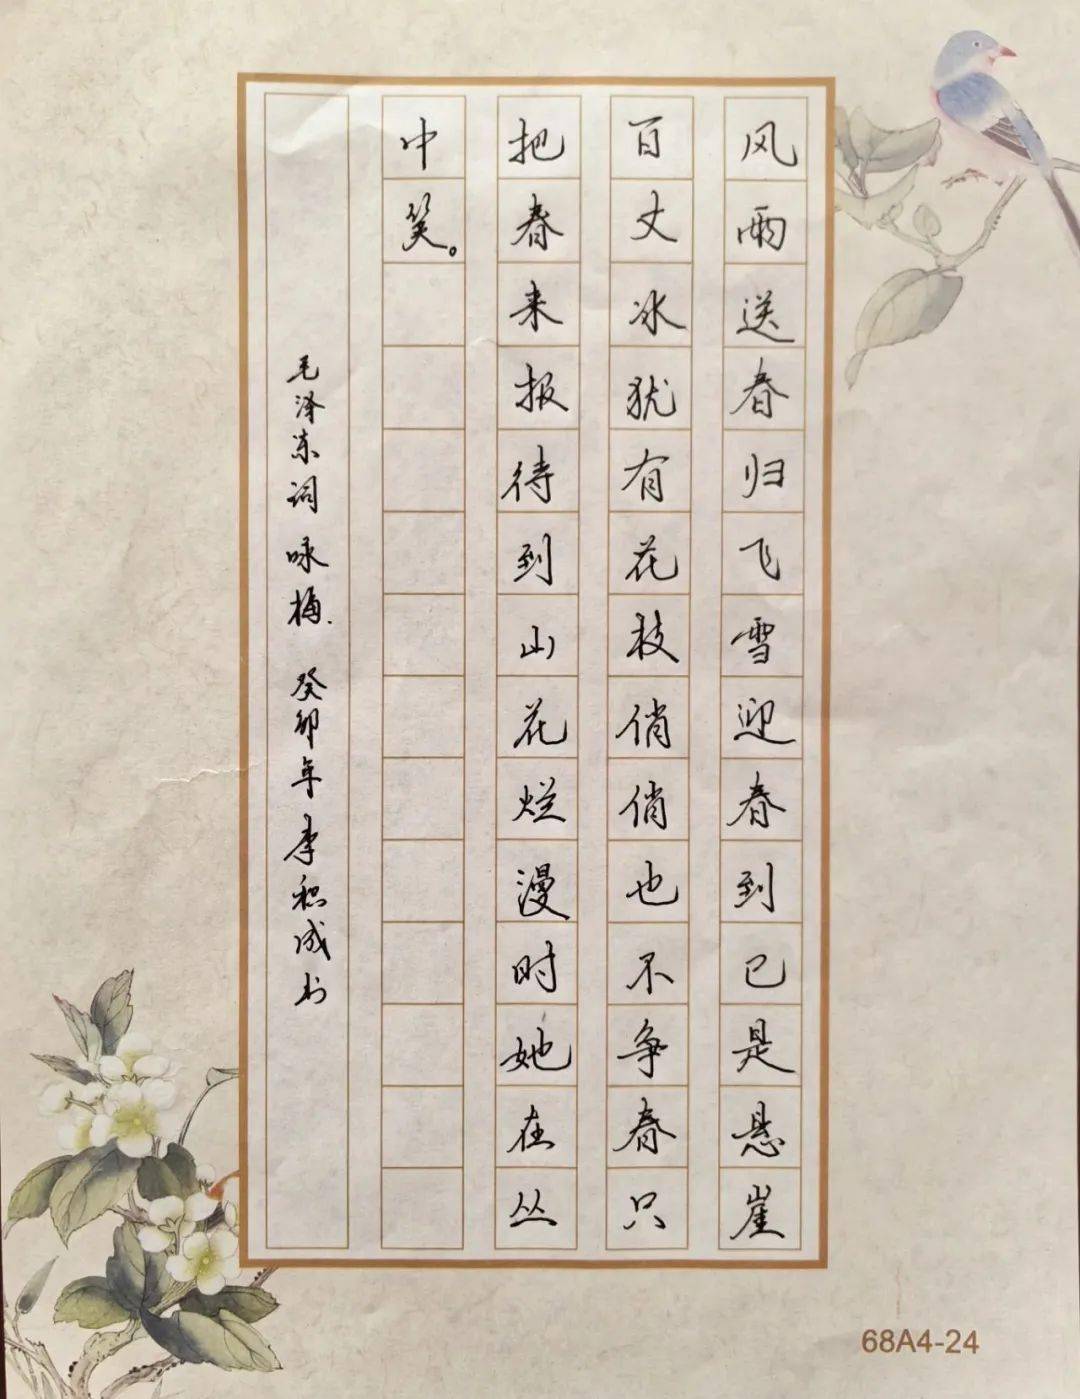 风雨送春归飞雪迎春到已是悬崖
百丈冰犹有花枝俏俏也不争春只
把春来报待到山花烂漫时她在丛
中笑。
毛泽东词 咏梅. 癸卯年李积成书
68A4-24